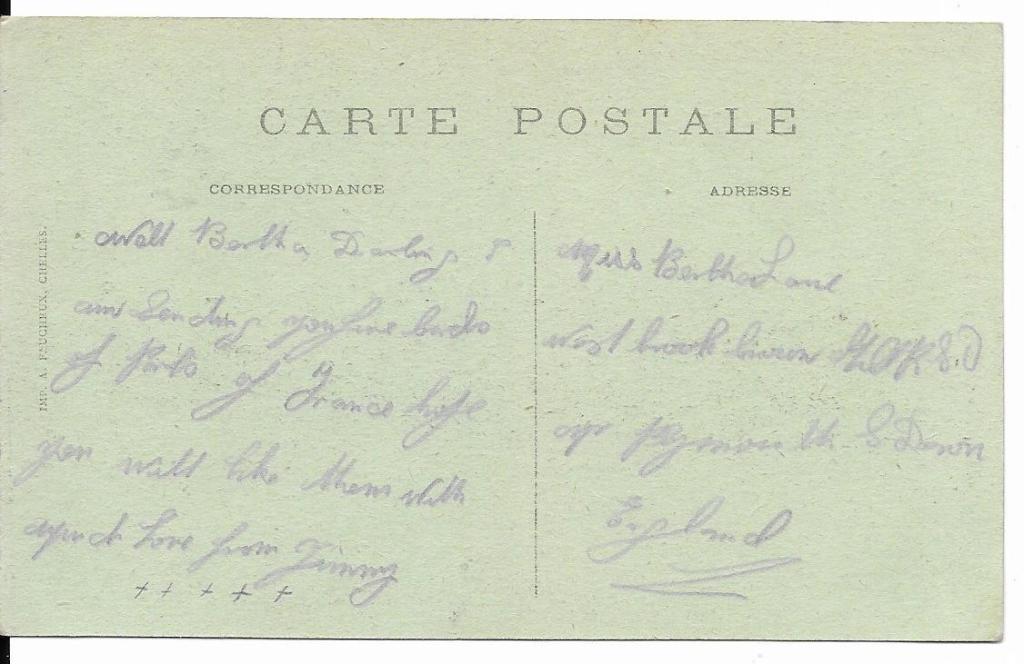 CARTE POSTALE
CORRESPONDANCE
ADRESSE
IMP. A. FAUCHEUX, CHELLES.
Well Bertha Darling I
am Sending you five cards
of Parts of France hope
you will like them with
much love from Jimmy
+ + + + +
Miss Bertha Lane
West brook
nr Plymouth S Devon
England